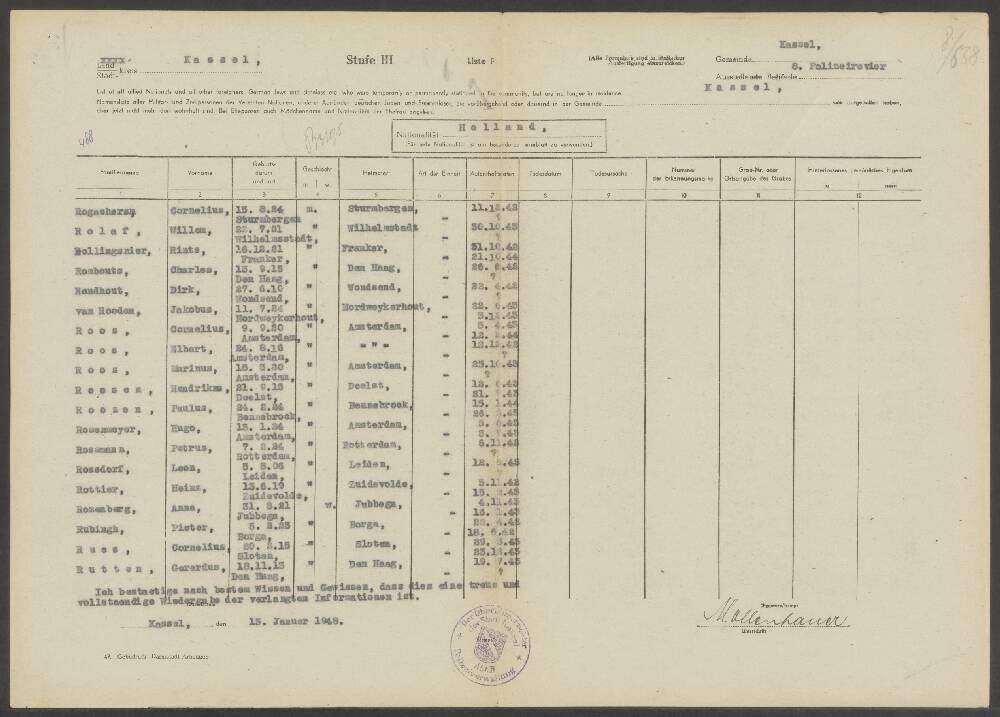 Kassel,
Land
Stadt- kreis Kassel, Stufe III Liste F Gemeinde
6. Polizeirevier
Ausstellende Behörde
Kassel,
List of all allied Nationals and all other foreigners, German Jews and stateless etc. who were temporarily or permanently stationed in the community, but are no longer in residence.
Namensliste aller Militär- und Zivilpersonen der Vereinten Nationen, anderer Ausländer, deutscher Juden und Staatenloser, die vorübergehend oder dauernd in der Gemeinde
aber jetzt nicht mehr dort wohnhaft sind. Bei Ehepaaren auch Mädchenname und Nationalität der Ehefrau angeben.
488
Nationalität Holland,
(Für jede Nationalität ist ein besonderes Formblatt zu verwenden.)
Familienname Vorname Geburts-datum und -ort Geschlecht m. w. Heimatort Art der Einheit Aufenthaltsdaten Todesdatum Todesursache Nummer der Erkennungsmarke Grab-Nr. oder Ortsangabe des Grabes Hinterlassenes persönliches Eigentum
1 2 3 4 5 6 7 8 9 10 11 12
Cornelius, 15. 8.24 m. Sturmbergen, 11.12.42
Sturmbergen ?
Rolaf, Willem, 22. 7.21 " Wilhelmstadt 30.10.43
Wilhelmsstadt, ?
Rints, 16.12.21 " Franker, 31.10.42
Franker, 21.10.44
Rombouts, Charles, 13. 9.15 " Den Haag, 26. 6.42
Den Haag, ?
Rondhout, Dirk, 27. 6.10 " Wondsend, 22. 4.42
Wondsend, ?
van Rooden, Jakobus, 11. 7.24 " Nordweykerhout, 22. 6.43
Nordweykerhout, 3.12.43
Roos, Cornelius, 9. 9.20 " Amsterdam, 5. 4.43
Amsterdam, 12. 2.44
Roos, Elbert, 24. 8.16 " = " = 12.12.42
Amsterdam, ?
Roos, Marinus, 15. 3.20 " Amsterdam, 23.10.42
Amsterdam, ?
Roosen, Hendrikus, 21. 9.15 " Doelst, 12. 6.43
Doelst, 21. 7.43
Roozen, Paulus, 24. 2.24 " Bennebrock, 15. 1.44
Bennebrock, 26. 3.45
Rosenmeyer, Hugo, 13. 1.24 " Amsterdam, 5. 6.43
Amsterdam, 3. 7.43
Rosmann, Petrus, 7. 2.24 " Rotterdam, 6.11.42
Rotterdam, ?
Rossdorf, Leen, 5. 8.06 " Leiden, 12. 6.43
Leiden, ?
Rottier, Heinz, 13.6.19 " Zuidevolde, 5.11.42
Zuidevolde, 15. 2.43
Rozenberg, Anna, 31. 3.21 w. Jubbega, 4.11.42
Jubbega, 16. 1.43
Rubingh, Pieter, 5. 2.23 " Borga, 22. 4.42
Borga, 18. 6.42
Russ, Cornelius, 20. 2.15 " Sloten, 29. 3.43
Sloten, 23.12.43
Rutten, Gerardus, 18.11.13 " Den Haag, 19. 7.43
Den Haag, ?
Ich bestaetige nach bestem Wissen und Gewissen, dass dies eine treue und
vollstaendige Wiedergabe der verlangten Informationen ist.
Kassel, den 15. Januar 1948.
Mollenhauer
Unterschrift
Der Oberbürgermeister
der Stadt Kassel
Polizeiverwaltung